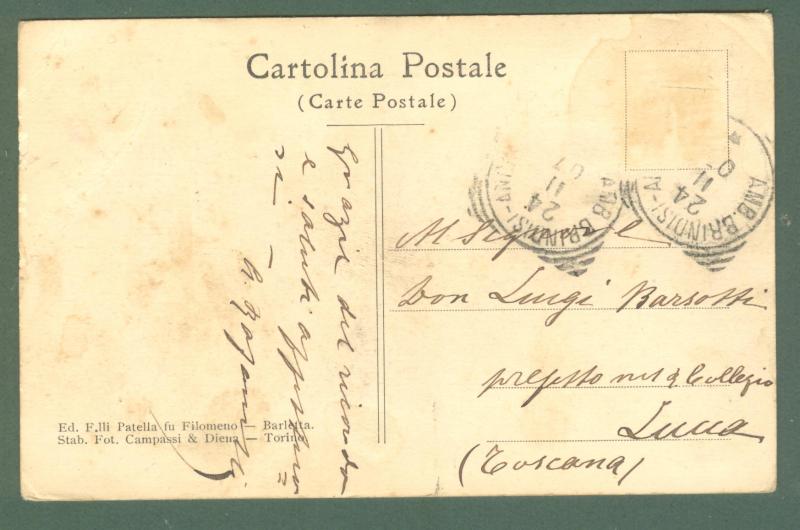 Cartolina Postale
(Carte Postale)
Grazie del ricordo
e saluti affettuo=
si —
AMB. BRINDISI-AN
24
11
07
AMB. BRINDISI-A
24
11
0
Al Signore
Don Luigi Barsotti
prefetto nel R. Collegio
Lucca
(Toscana)
Ed. F.lli Patella fu Filomeno — Barletta.
Stab. Fot. Campassi & Diena — Torino.